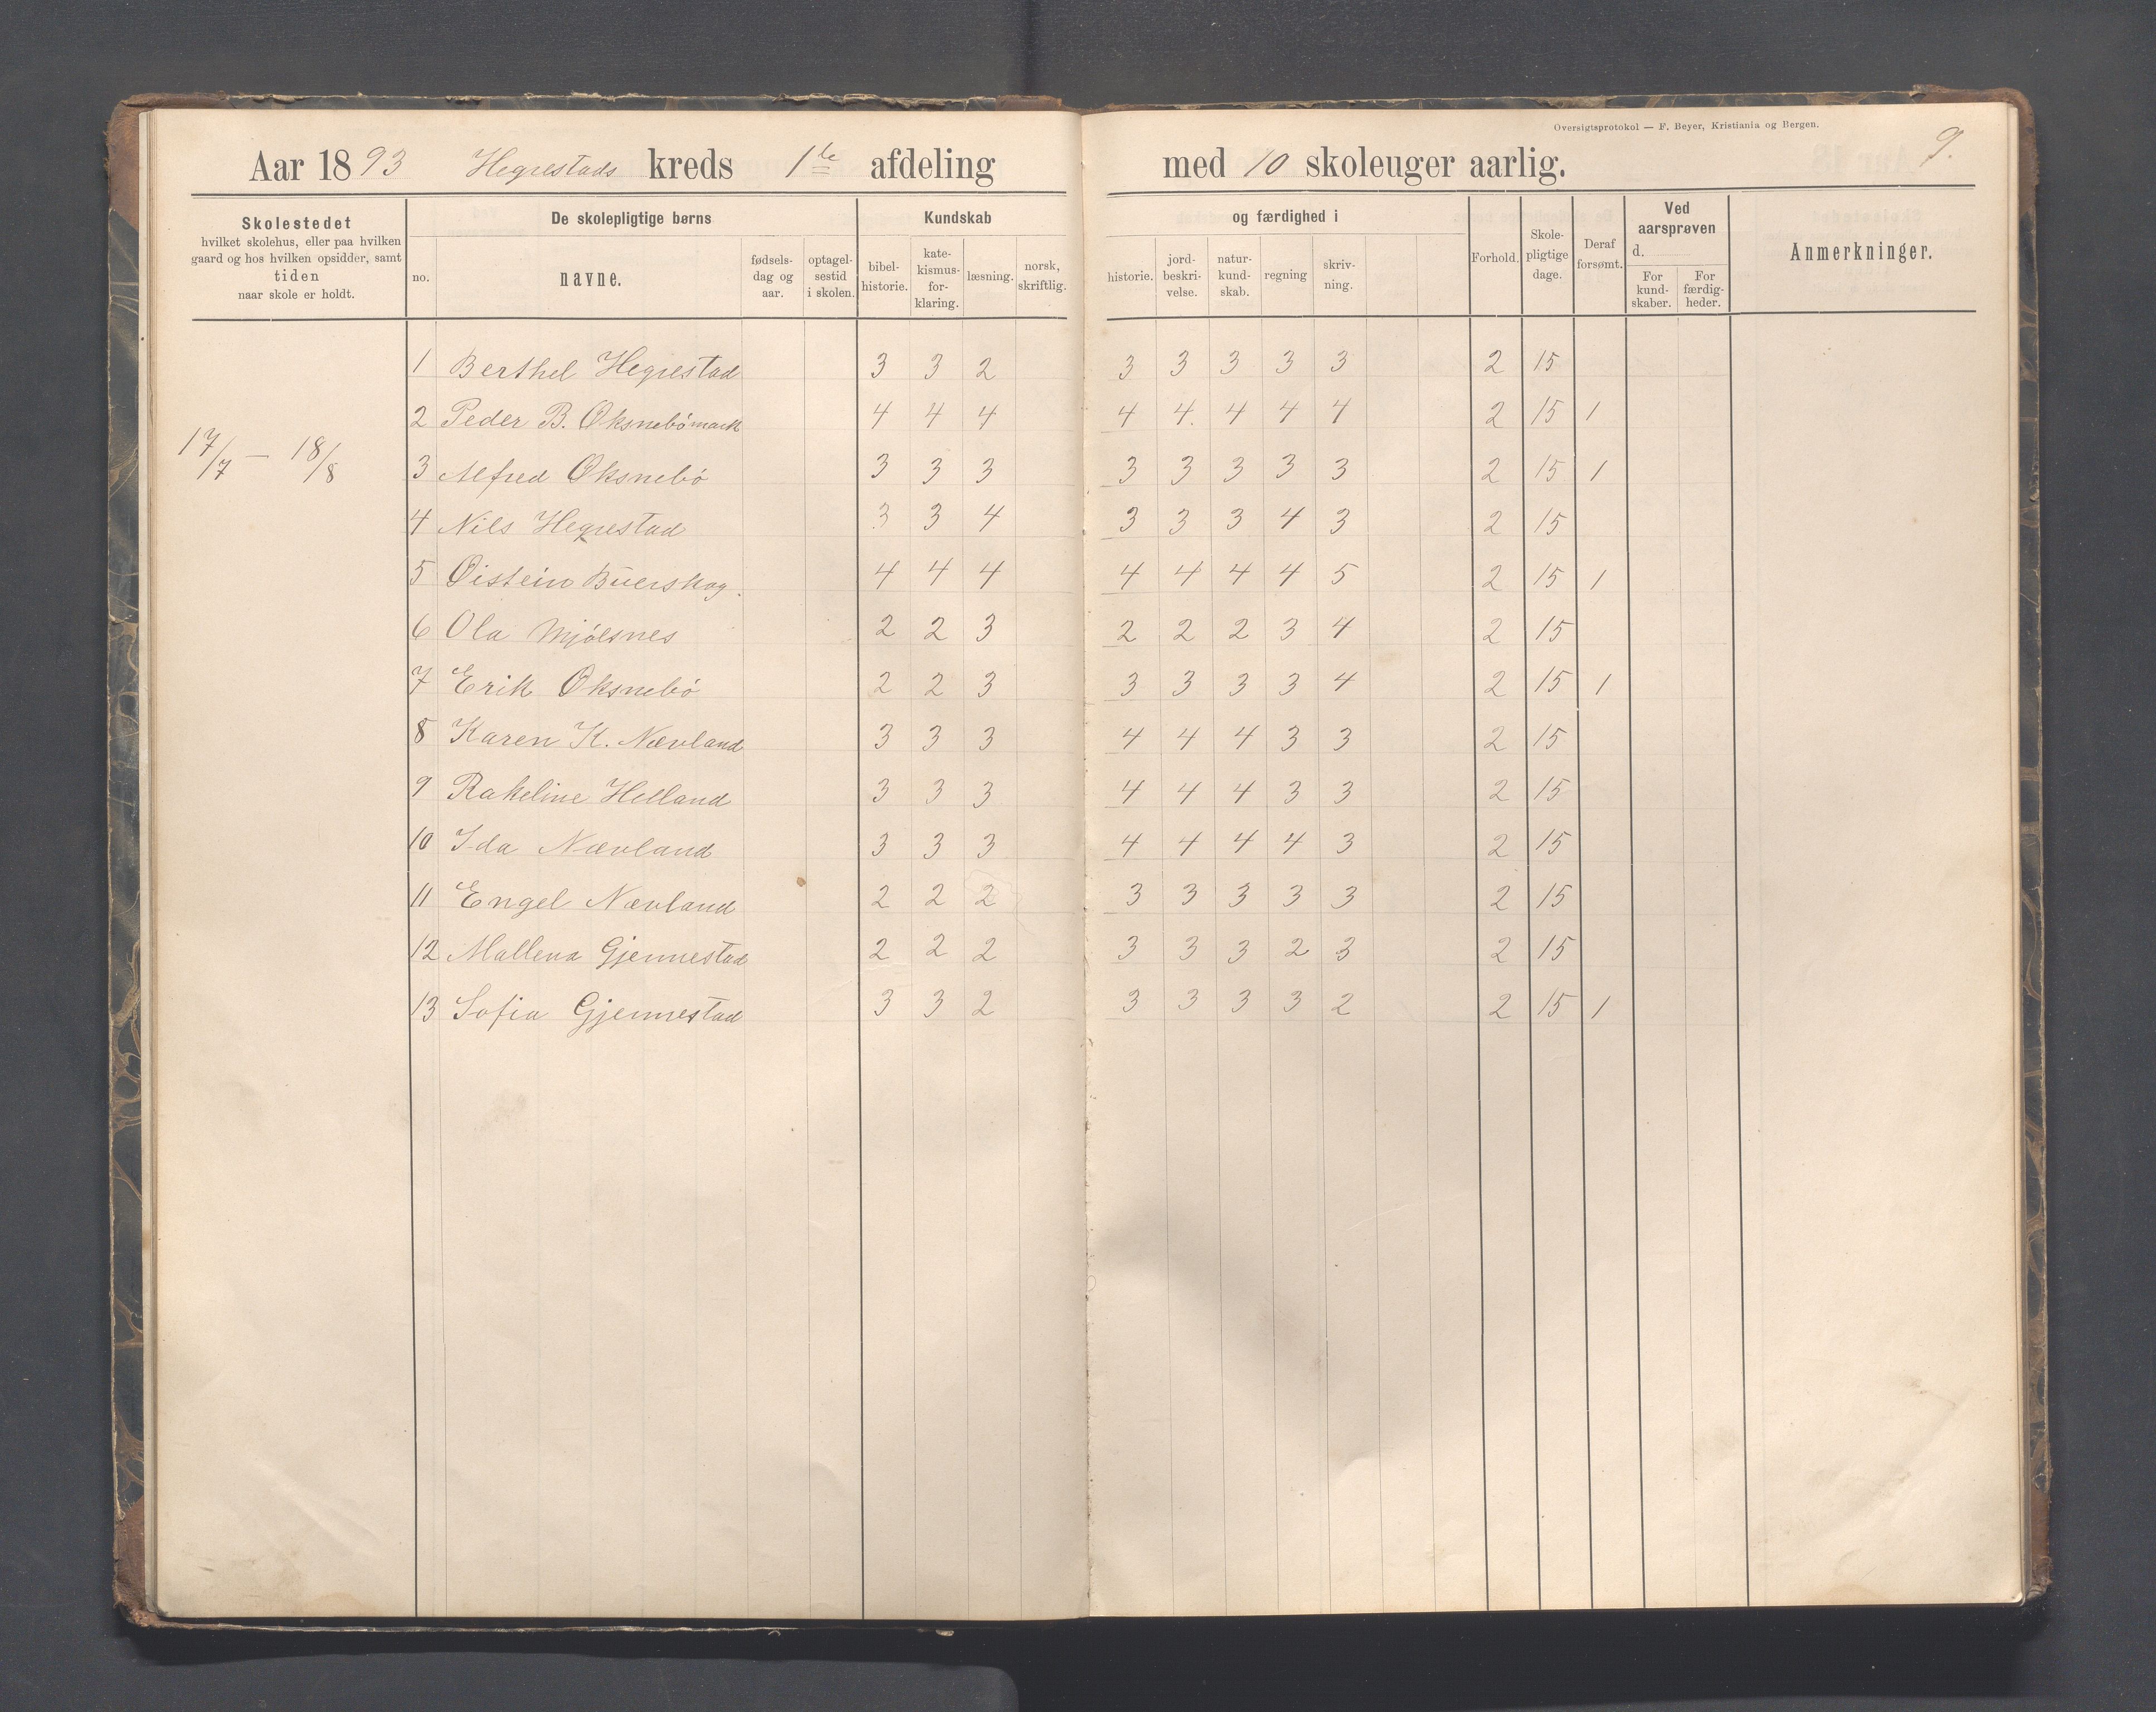 Oversigtsprotokol — F. Beyer, Kristiania og Bergen.
9.
Aar 1893 Hegrestads kreds 1ste afdeling med 10 skoleuger aarlig.
Skolestedet hvilket skolehus, eller paa hvilken gaard og hos hvilken opsidder, samt tiden naar skole er holdt.
De skolepligtige børns
no. navne. fødsels-dag og aar. optagel-sestid i skolen.
Kundskab og færdighed i
bibel-historie. kate-kismus-for-klaring. læsning. norsk, skriftlig. historie. jord-beskri-velse. natur-kund-skab. regning skriv-ning.
Forhold. Skole-pligtige dage. Deraf forsømt.
Ved aarsprøven d.
For kund-skaber. For færdig-heder.
Anmerkninger.
17/7 — 18/8
1 Berthel Hegrestad 3 3 2 3 3 3 3 3 2 15
2 Peder B. Oksnebömark 4 4 4 4 4. 4 4 4 2 15 1
3 Alfred Oksnebö 3 3 3 3 3 3 3 3 2 15 1
4 Nils Hegrestad 3 3 4 3 3 3 4 3 2 15
5 Øistein Buerskog. 4 4 4 4 4 4 4 5 2 15 1
6 Ola Mjölsnes 2 2 3 2 2 2 3 4 2 15
7 Erik Oksnebö 2 2 3 3 3 3 3 4 2 15 1
8 Karen K. Nævland 3 3 3 4 4 4 3 3 2 15
9 Rakeline Helland 3 3 3 4 4 4 3 3 2 15
10 Ida Nævland 3 3 3 4 4 4 4 3 2 15
11 Engel Nævland 2 2 2 3 3 3 3 3 2 15
12 Mallena Gjennestad 2 2 2 3 3 3 2 3 2 15
13 Sofia Gjennestad 3 3 2 3 3 3 3 2 2 15 1